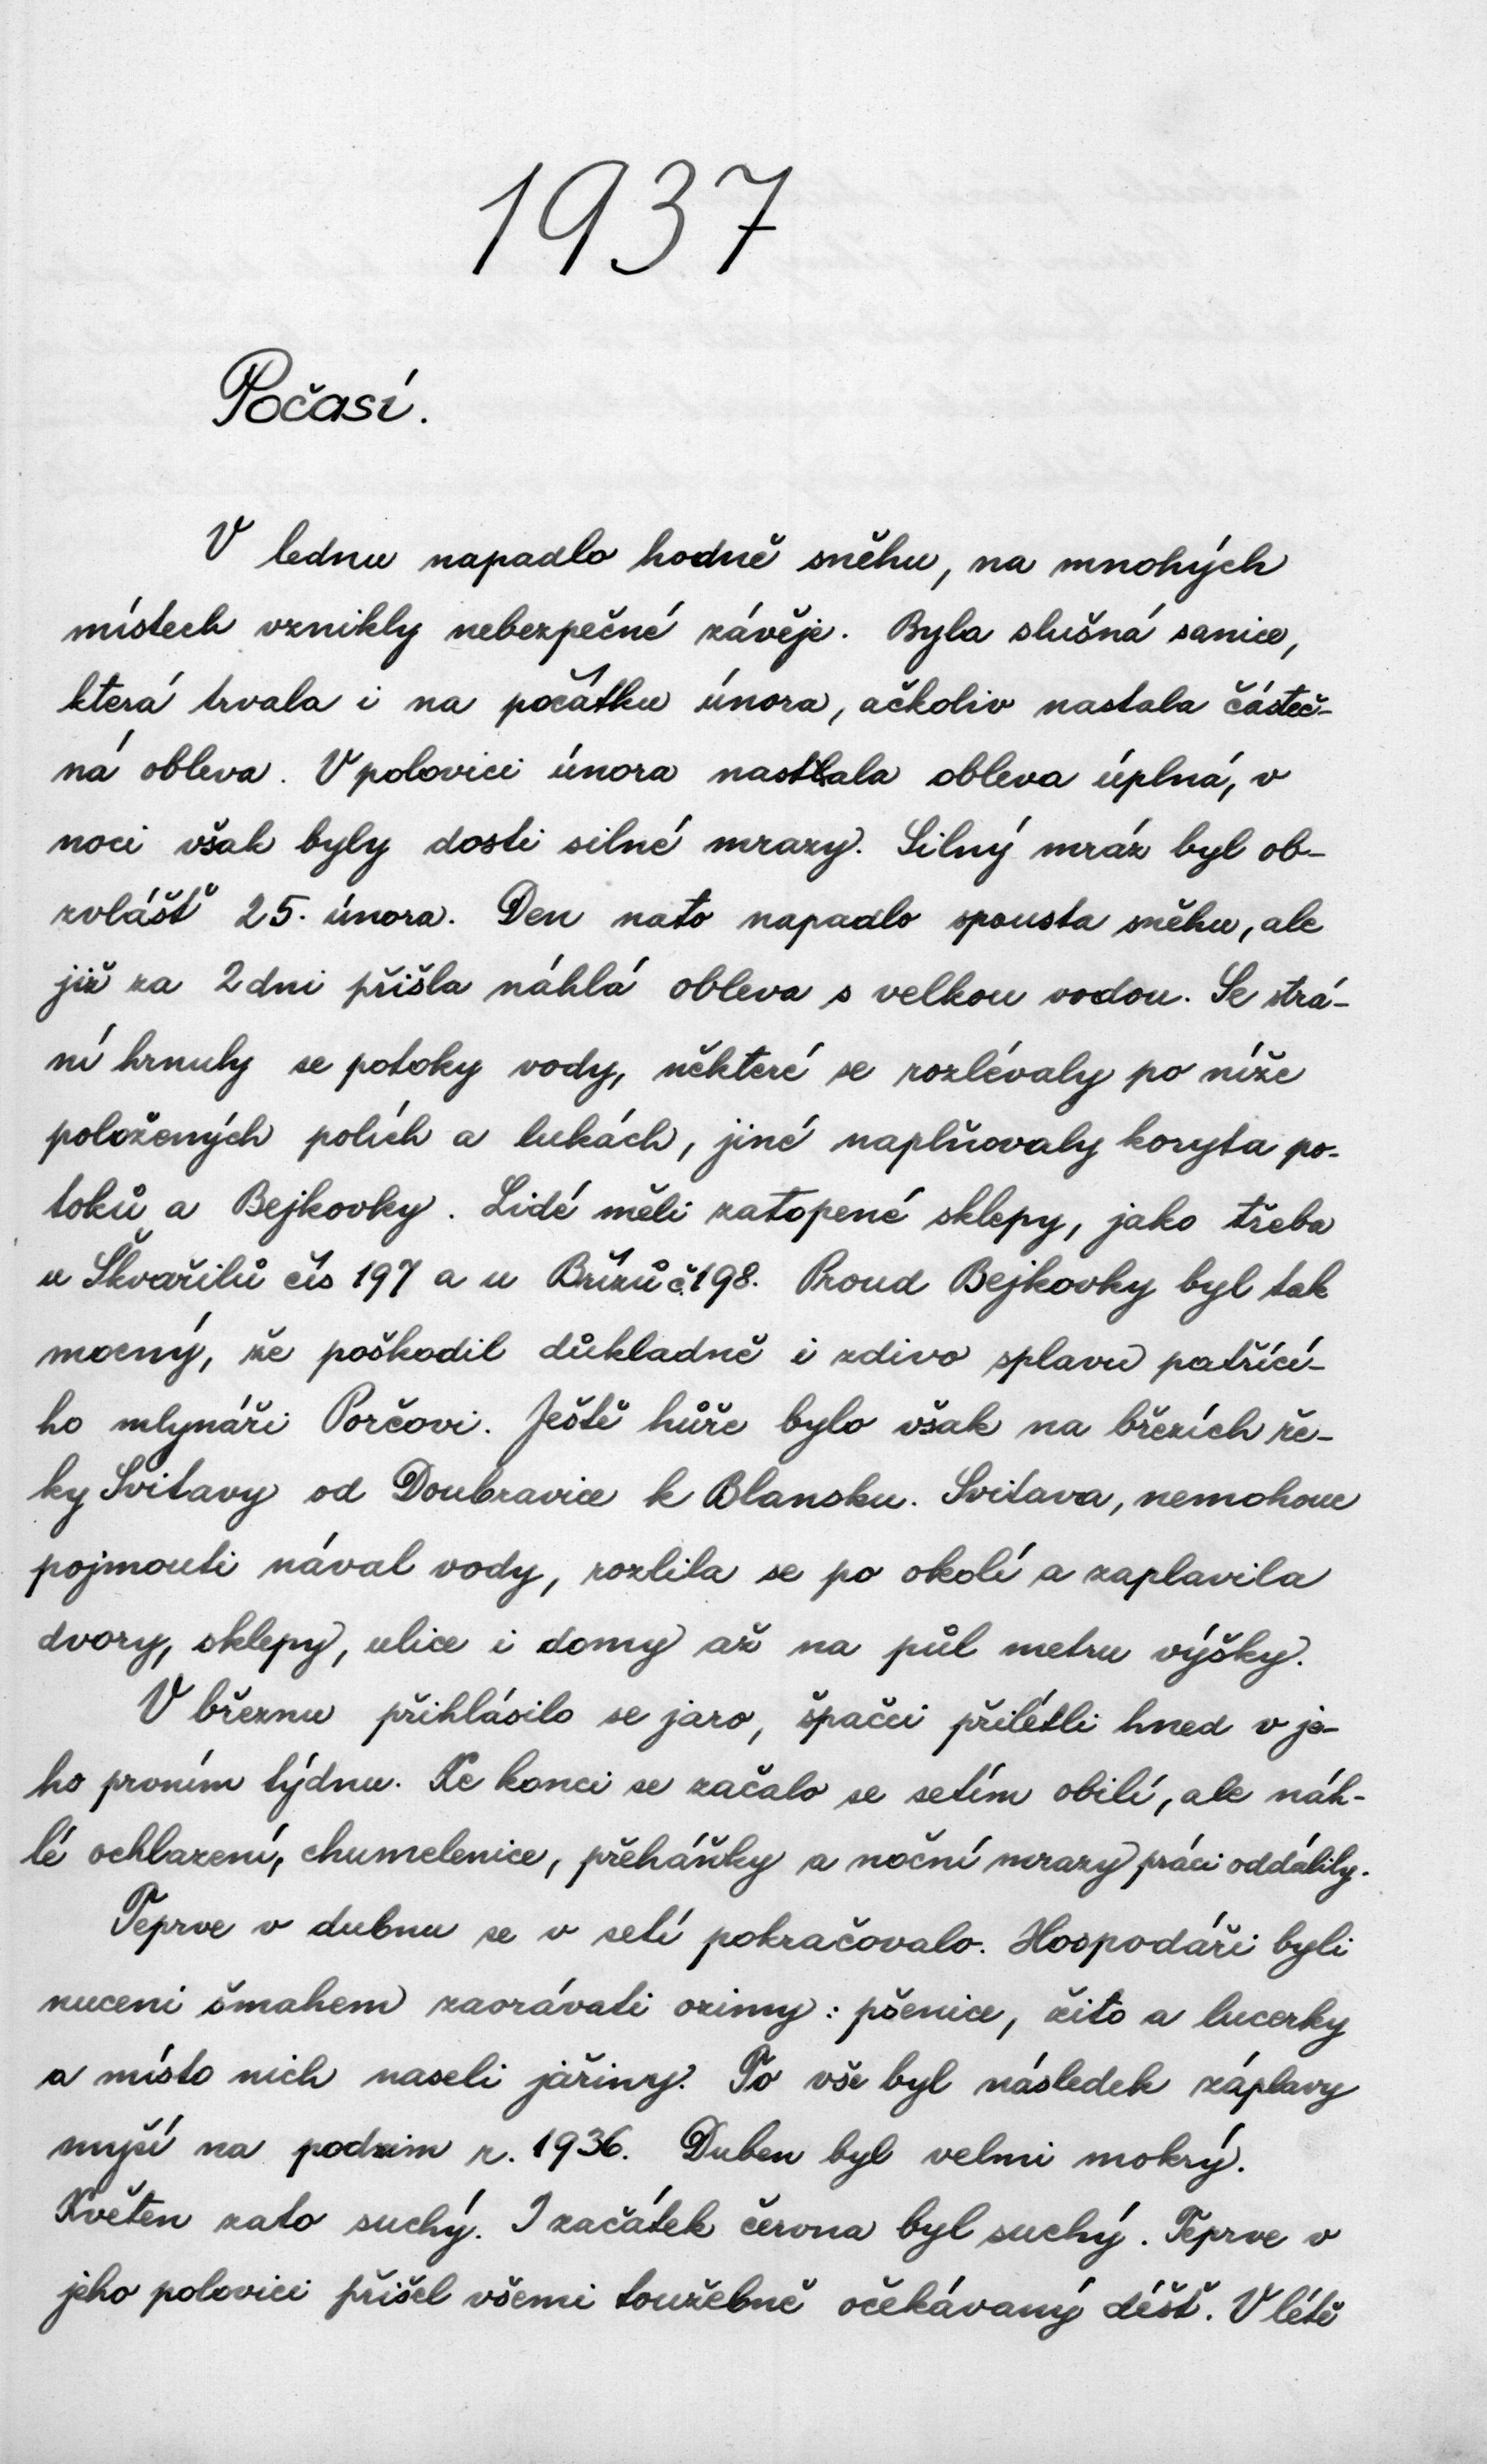 1937
Počasí.
V lednu napadlo hodně sněhu, na mnohých
místech vznikly nebezpečné závěje. Byla slušná sanice,
která trvala i na počátku února, ačkoliv nastala částeč-
ná obleva. V polovici února nastala obleva úplná, v
noci však byly dosti silné mrazy. Silný mráz byl ob-
zvláště 25. února. Den nato napadlo spousta sněhu, ale
již za 2 dni přišla náhlá obleva s velkou vodou. Se strá-
ní hrnuly se potoky vody, některé se rozlévaly po níže
položených polích a lukách, jiné naplňovaly koryta po-
toků a Bejkovky. Lidé měli zatopené sklepy, jako třeba
u Škvařilů čís 197 a u Břízů č.198. Proud Bejkovky byl tak
mocný, že poškodil důkladně i zdivo splavu patřící-
ho mlynáři Porčovi. Ještě hůře bylo však na březích ře-
ky Svitavy od Doubravice k Blansku. Svitava, nemohouc
pojmouti nával vody, rozlila se po okolí a zaplavila
dvory, sklepy, ulice i domy až na půl metru výšky.
V březnu přihlásilo se jaro, špačci přilétli hned v je-
ho prvním týdnu. Ke konci se začalo se setím obilí, ale náh-
lé ochlazení, chumelenice, přeháňky a noční mrazy práci oddálily.
Teprve v dubnu se v setí pokračovalo. Hospodáři byli
nuceni šmahem zaorávati ozimy: pšenice, žito a lucerky
a místo nich naseli jařiny. To vše byl následek záplavy
myší na podzim r. 1936. Duben byl velmi mokrý.
Květen zato suchý. I začátek června byl suchý. Teprve v
jeho polovici přišel všemi toužebně očekávaný déšť. V létě